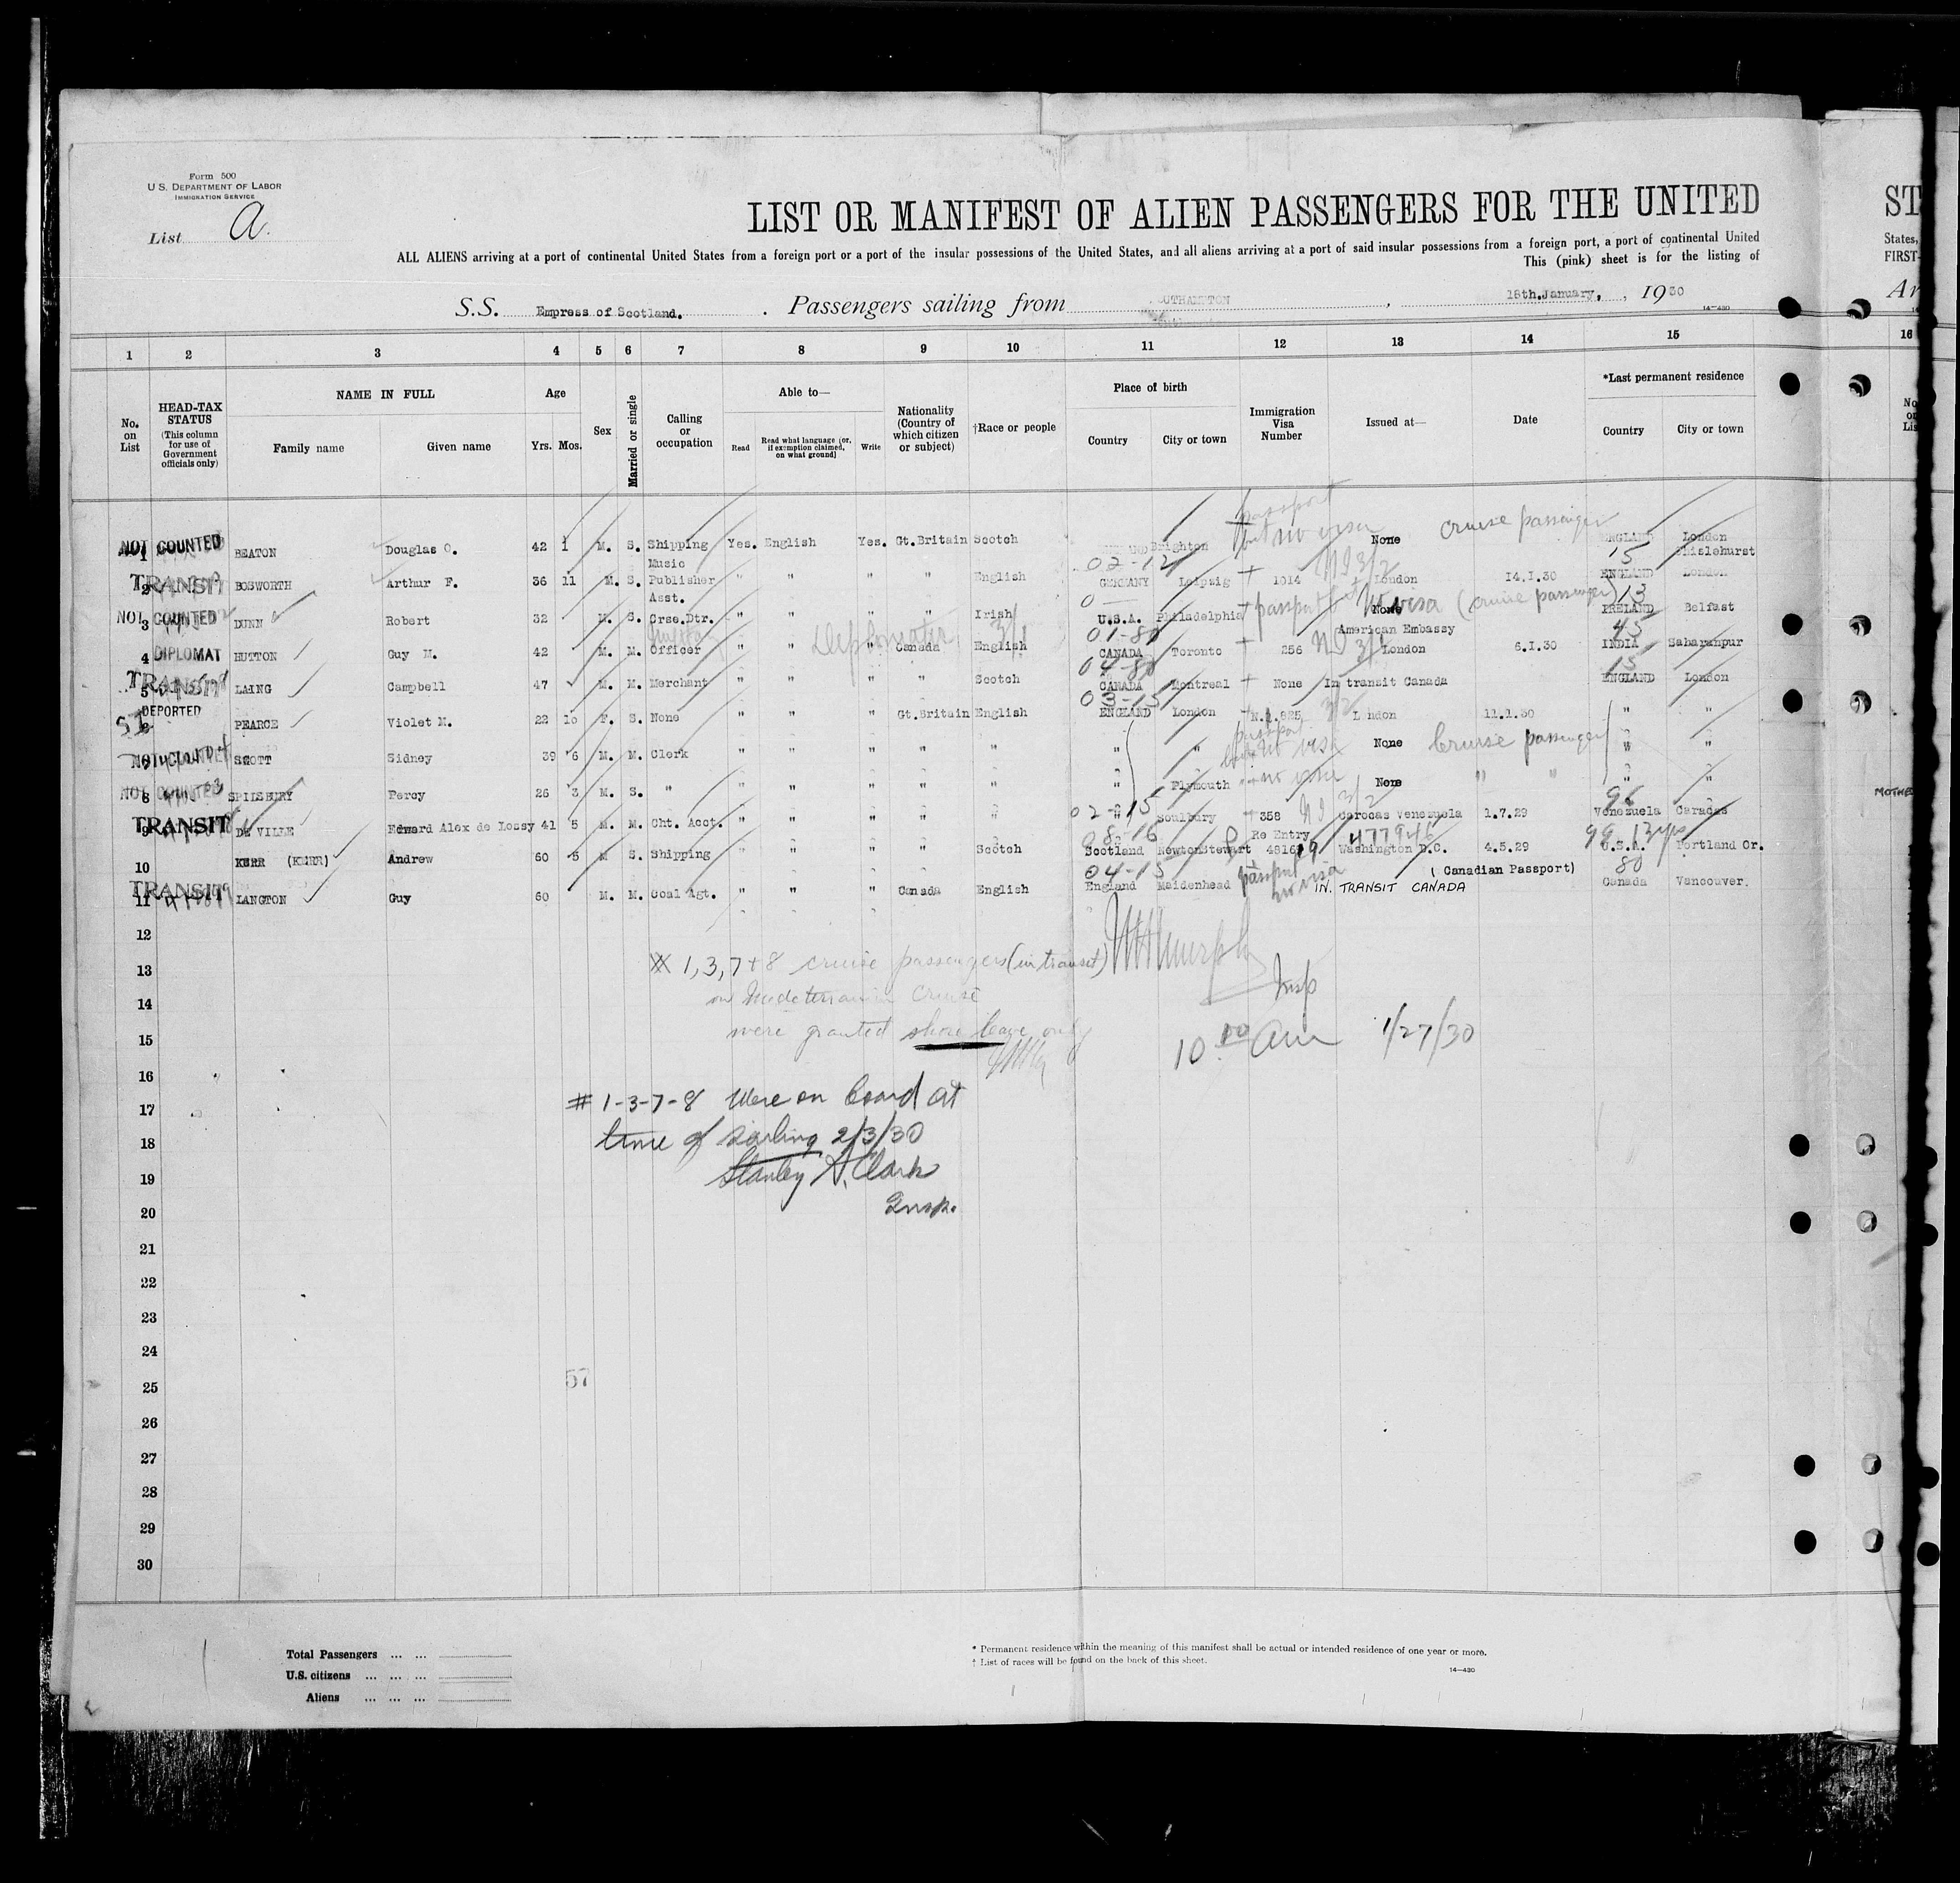 Form 500
U.S. DEPARTMENT OF LABOR
IMMIGRATION SERVICE
List a.
LIST OR MANIFEST OF ALIEN PASSENGERS FOR THE UNITED
ST
ALL ALIENS arriving at a port of continental United States from a foreign port or a port of the insular possessions of the United States, and all aliens arriving at a port of said insular possessions from a foreign port, a port of continental United
States,
This (pink) sheet is for the listing of
FIRST-
S.S. Empress of Scotland. Passengers sailing from SOUTHAMPTON, 18th.January, 1930
Ar
14-430
1 2 3 4 5 6 7 8 9 10 11 12 13 14 15 16
No. on List
HEAD-TAX STATUS (This column for use of Government officials only)
NAME IN FULL
Family name Given name
Age
Yrs. Mos.
Sex
Married or single
Calling or occupation
Able to—
Read Read what language [or, if exemption claimed, on what ground] Write
Nationality (Country of which citizen or subject)
†Race or people
Place of birth
Country City or town
Immigration Visa Number
Issued at—
Date
*Last permanent residence
Country City or town
1 NOT COUNTED BEATON Douglas O. 42 1 M. S. Shipping Yes. English Yes. Gt.Britain Scotch Brighton passport but no visa None cruise passenger ENGLAND London Chislehurst
02-12 15
2 TRANSIT BOSWORTH Arthur F. 36 11 M. S. Music Publisher " " " " English GERMANY Leipzig 1014 London 14.1.30 ENGLAND London
3 NOT COUNTED DUNN Robert 32 M. S. Asst. Crse.Dtr. " " " " Irish U.S.A. Philadelphia passport but no visa None (cruise passenger) 13 IRELAND Belfast
01-80 45
4 DIPLOMAT HUTTON Guy M. 42 M. M. Officer " " Diplomatic " Canada English CANADA Toronto 256 American Embassy London 6.1.30 INDIA Saharanpur
04-80 15
5 TRANSIT LAING Campbell 47 M. M. Merchant " " " " Scotch CANADA Montreal None In transit Canada ENGLAND London
03-15
6 DEPORTED PEARCE Violet M. 22 10 F. S. None " " " Gt.Britain English ENGLAND London London 11.1.30 " "
7 SCOTT Sidney 39 6 M. M. Clerk " " " " " " " None Cruise passenger " "
8 NOT COUNTED SPILSBURY Percy 26 3 M. S. " " " " " " " Plymouth no visa None " " " "
02-15 96
9 TRANSIT DE VILLE Edward Alex de Lossy 41 5 M. M. Cht. Acct. " " " " " " Soulbury 358 Carocas Venezuela 1.7.29 Venezuela Caracas
10 KERR (KERR) Andrew 60 5 M S. Shipping " " " " Scotch Scotland NewtonStewart Re Entry 477946 Washington D.C. 4.5.29 U.S.A. Portland Or.
04-15 80
11 TRANSIT LANGTON Guy 60 M. M. Coal Agt. " " " Canada English England Maidenhead passport no visa IN TRANSIT CANADA (Canadian Passport) Canada Vancouver.
MOTHE
12
13 1,3,7+8 cruise passengers (in transit)
14 on Mediterranean Cruise
Insp
15 were granted shore leave only
10 00 am 1/27/30
16
17 # 1-3-7-8 Were on board at
18 time of sailing 2/3/30
19 Stanley A. Clark
20 Insp.
21
22
23
24
25 57
26
27
28
29
30
Total Passengers ... ...
U.S. citizens ... ... ...
Aliens ... ... ...
* Permanent residence within the meaning of this manifest shall be actual or intended residence of one year or more.
† List of races will be found on the back of this sheet.
14-430